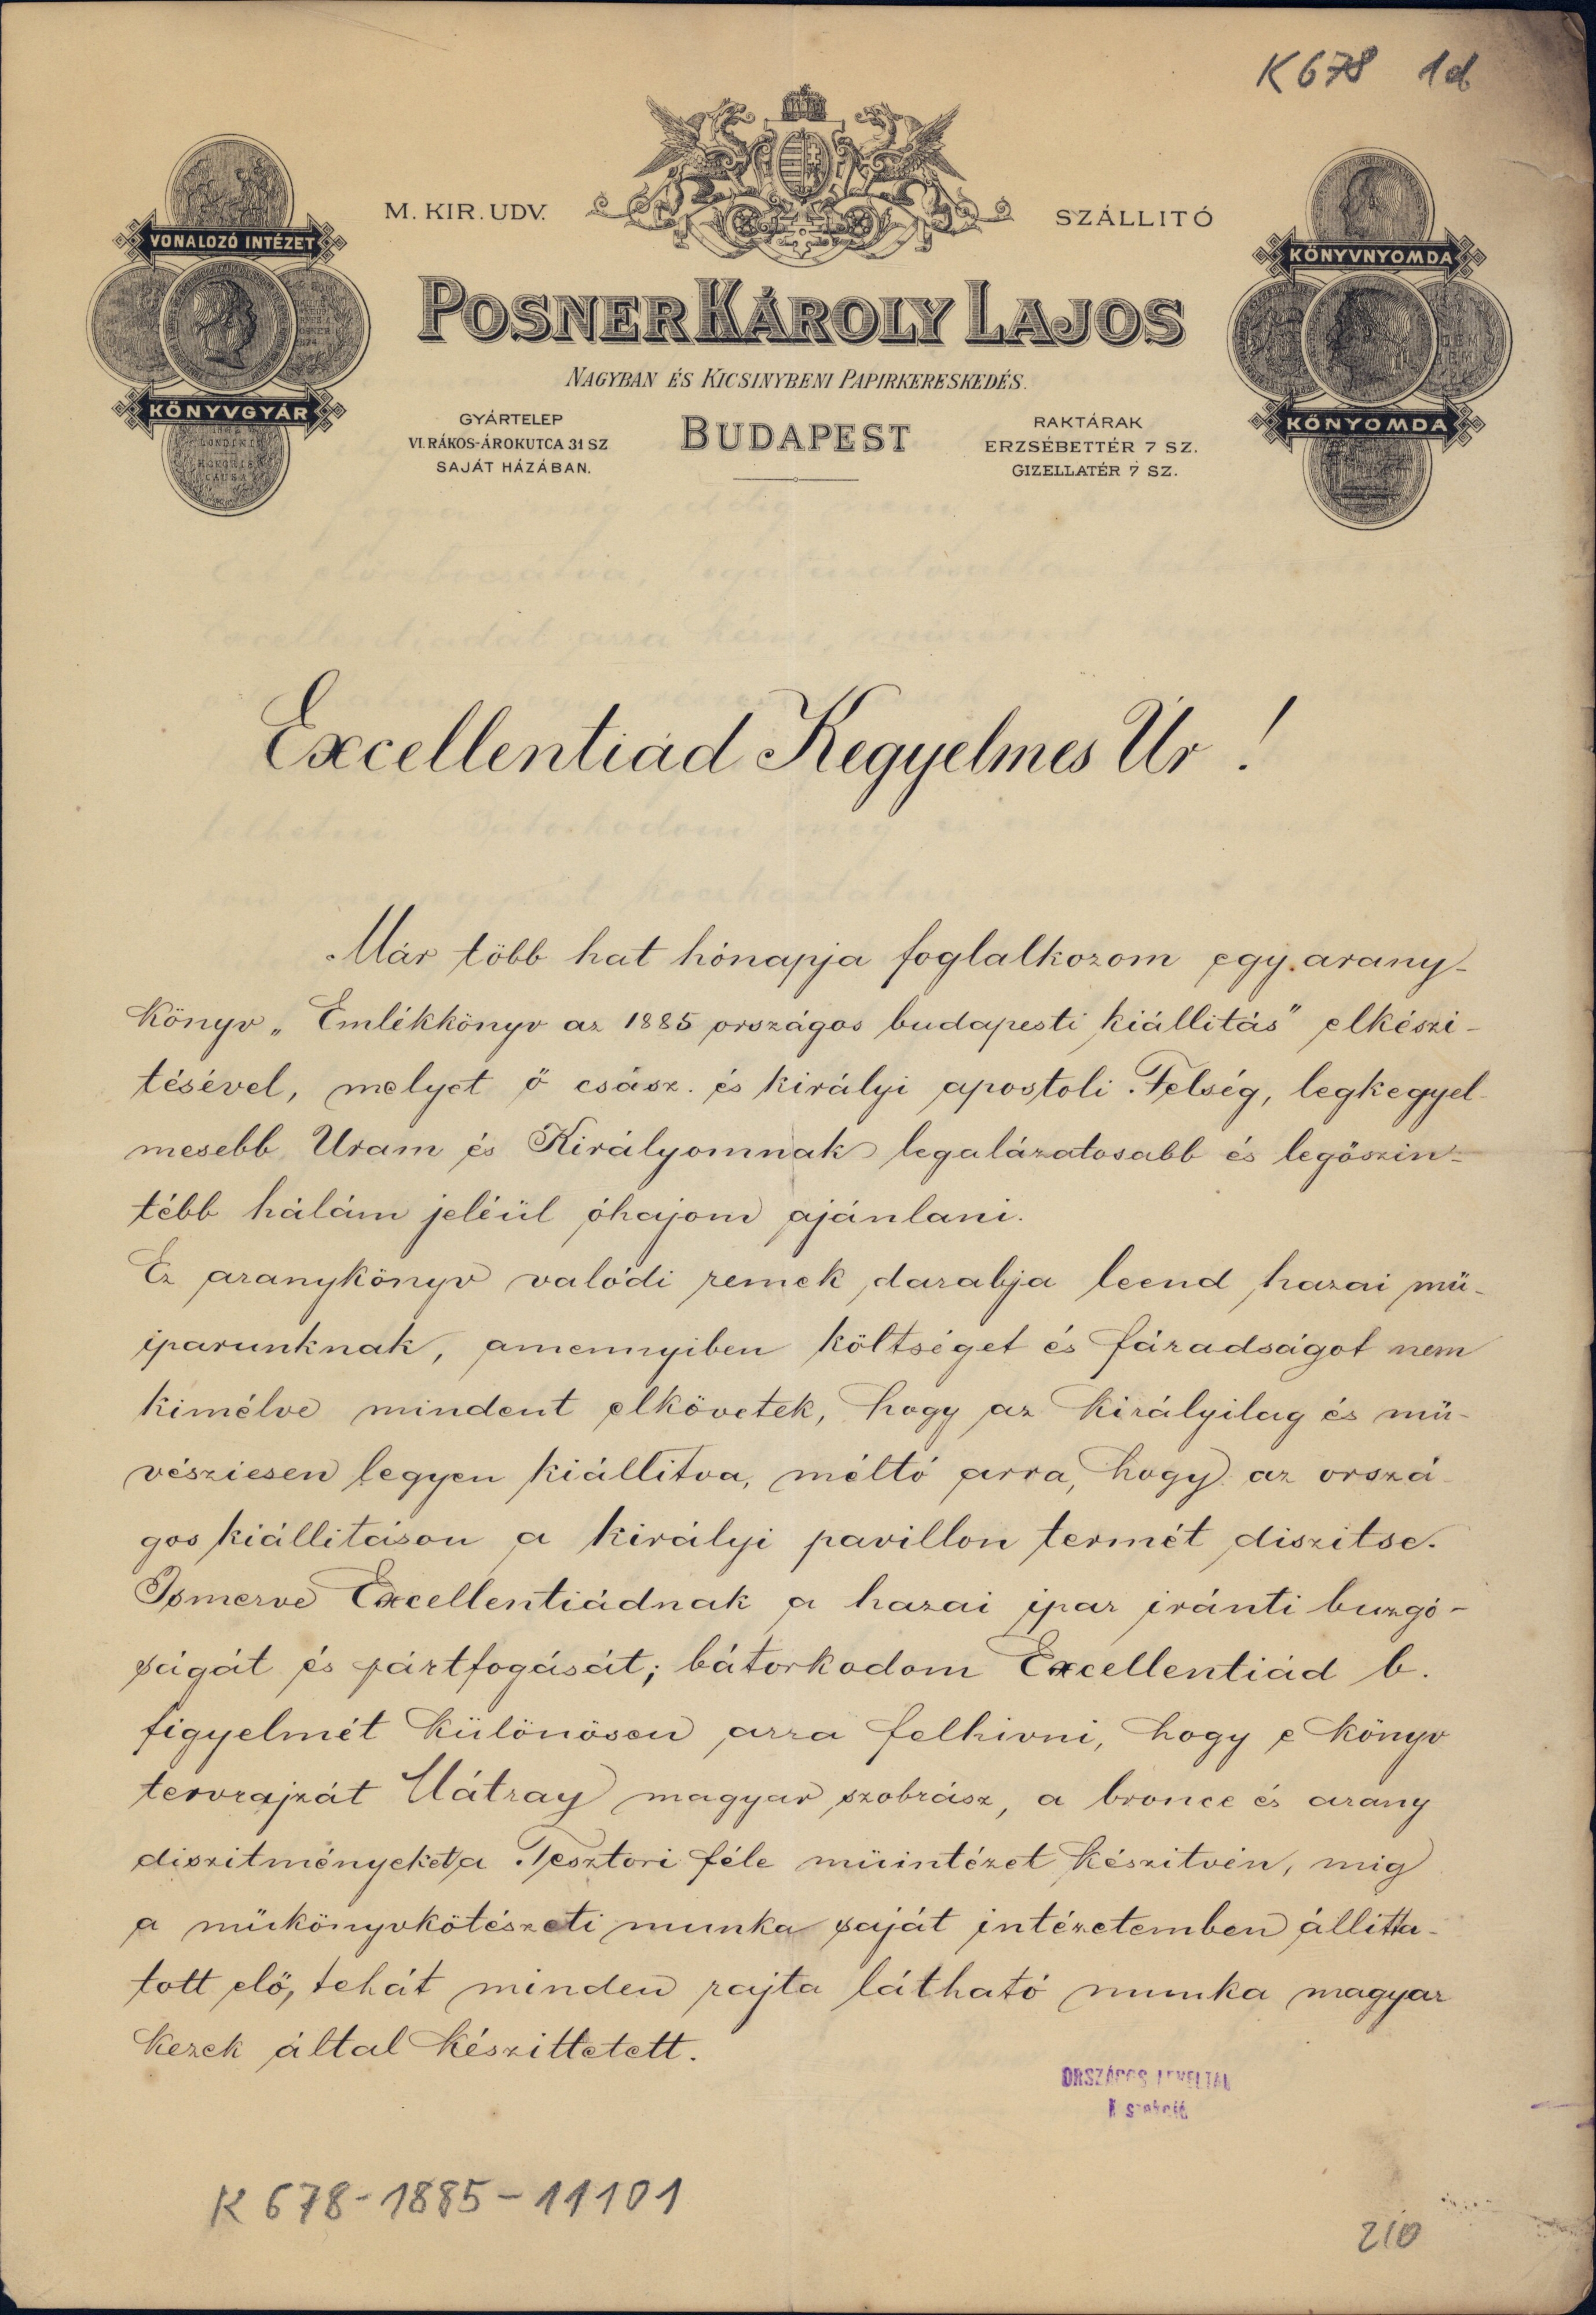 K 678 1d
M. KIR. UDV. SZÁLLITÓ
VONALOZÓ INTÉZET
KÖNYVGYÁR
KÖNYVNYOMDA
KŐNYOMDA
POSNER KÁROLY LAJOS
NAGYBAN ÉS KICSINYBENI PAPIRKERESKEDÉS.
BUDAPEST
GYÁRTELEP
VI. RÁKOS-ÁROKUTCA 31 SZ
SAJÁT HÁZÁBAN.
RAKTÁRAK
ERZSÉBETTÉR 7 SZ.
GIZELLATÉR 7 SZ.
Excellentiád Kegyelmes Úr !
Már több hat hónapja foglalkozom egy arany-
könyv „Emlékkönyv az 1885 országos budapesti kiállitás" elkészi-
tésével, melyet ő csász. és királyi apostoli Felség, legkegyel-
mesebb Uram és Királyomnak legalázatosabb és legőszin-
tébb hálám jeléül óhajom ajánlani.
Ez aranykönyv valódi remek darabja leend hazai mü-
iparunknak, amennyiben költséget és fáradságot nem
kimélve mindent elkövetek, hogy az királyilag és mü-
vésziesen legyen kiállitva, méltó arra, hogy az orszá-
gos kiállitáson a királyi pavillon termét diszitse.
Ismerve Excellentiádnak a hazai ipar iránti buzgó-
ságát és pártfogását; bátorkodom Excellentiád b.
figyelmét különösen arra felhivni, hogy e könyv
tervrajzát Mátray magyar szobrász, a bronce és arany
diszitményeket a Tesztori féle müintézet készitvén, mig
a mükönyvkötészeti munka saját intézetemben állitta-
tott elő, tehát minden rajta látható munka magyar
kezek által készittetett.
ORSZÁGOS LEVÉLTÁR
K szekció
K 678-1885-11101
210